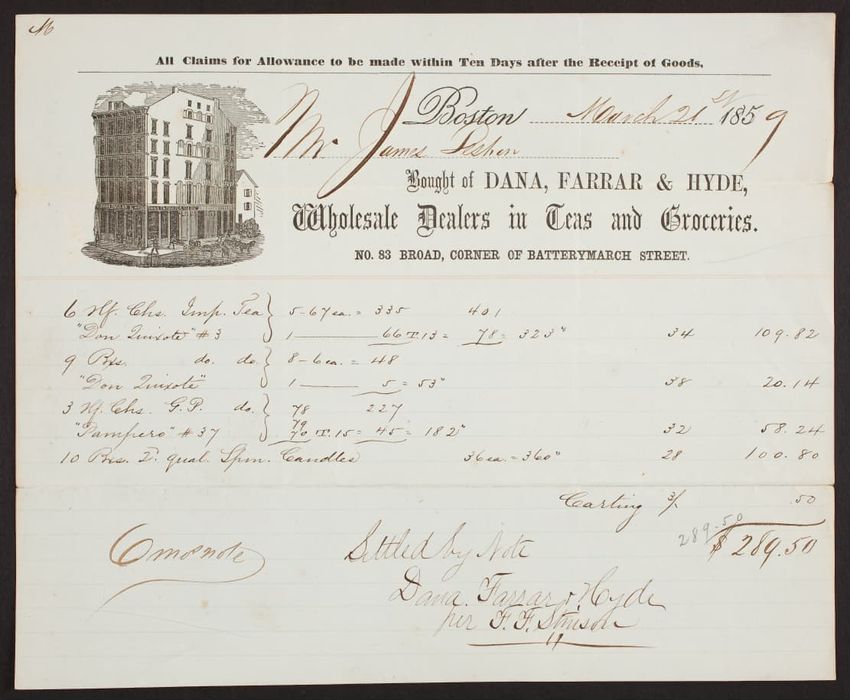 M
All Claims for Allowance to be made within Ten Days after the Receipt of Goods.
Boston March 21st 1859
Mr James
Bought of DANA, FARRAR & HYDE,
Wholesale Dealers in Teas and Groceries.
NO. 83 BROAD, CORNER OF BATTERYMARCH STREET.
6 Hf. Chs. Imp. Tea } 5-67 ea. = 335 401
"Don Quixote" #3 } 1 — 66 T.13 = 78 = 323" 34 109.82
9 Bxs. do. do. } 8-6 ea. = 48
"Don Quixote" } 1 — 5 = 53" 38 20.14
3 Hf. Chs. G.P. do. } 78 227
79
"Pampero" #37 } 70 T.15 = 45 = 182" 32 58.24
10 Bxs. 2. qual. Spm. Candles 36 ea. = 360" 28 100.80
Carting 3/ .50
289.50
$ 289.50
6 mos note
Settled by Note
Dana. Farrar & Hyde
per F. F. Stimson